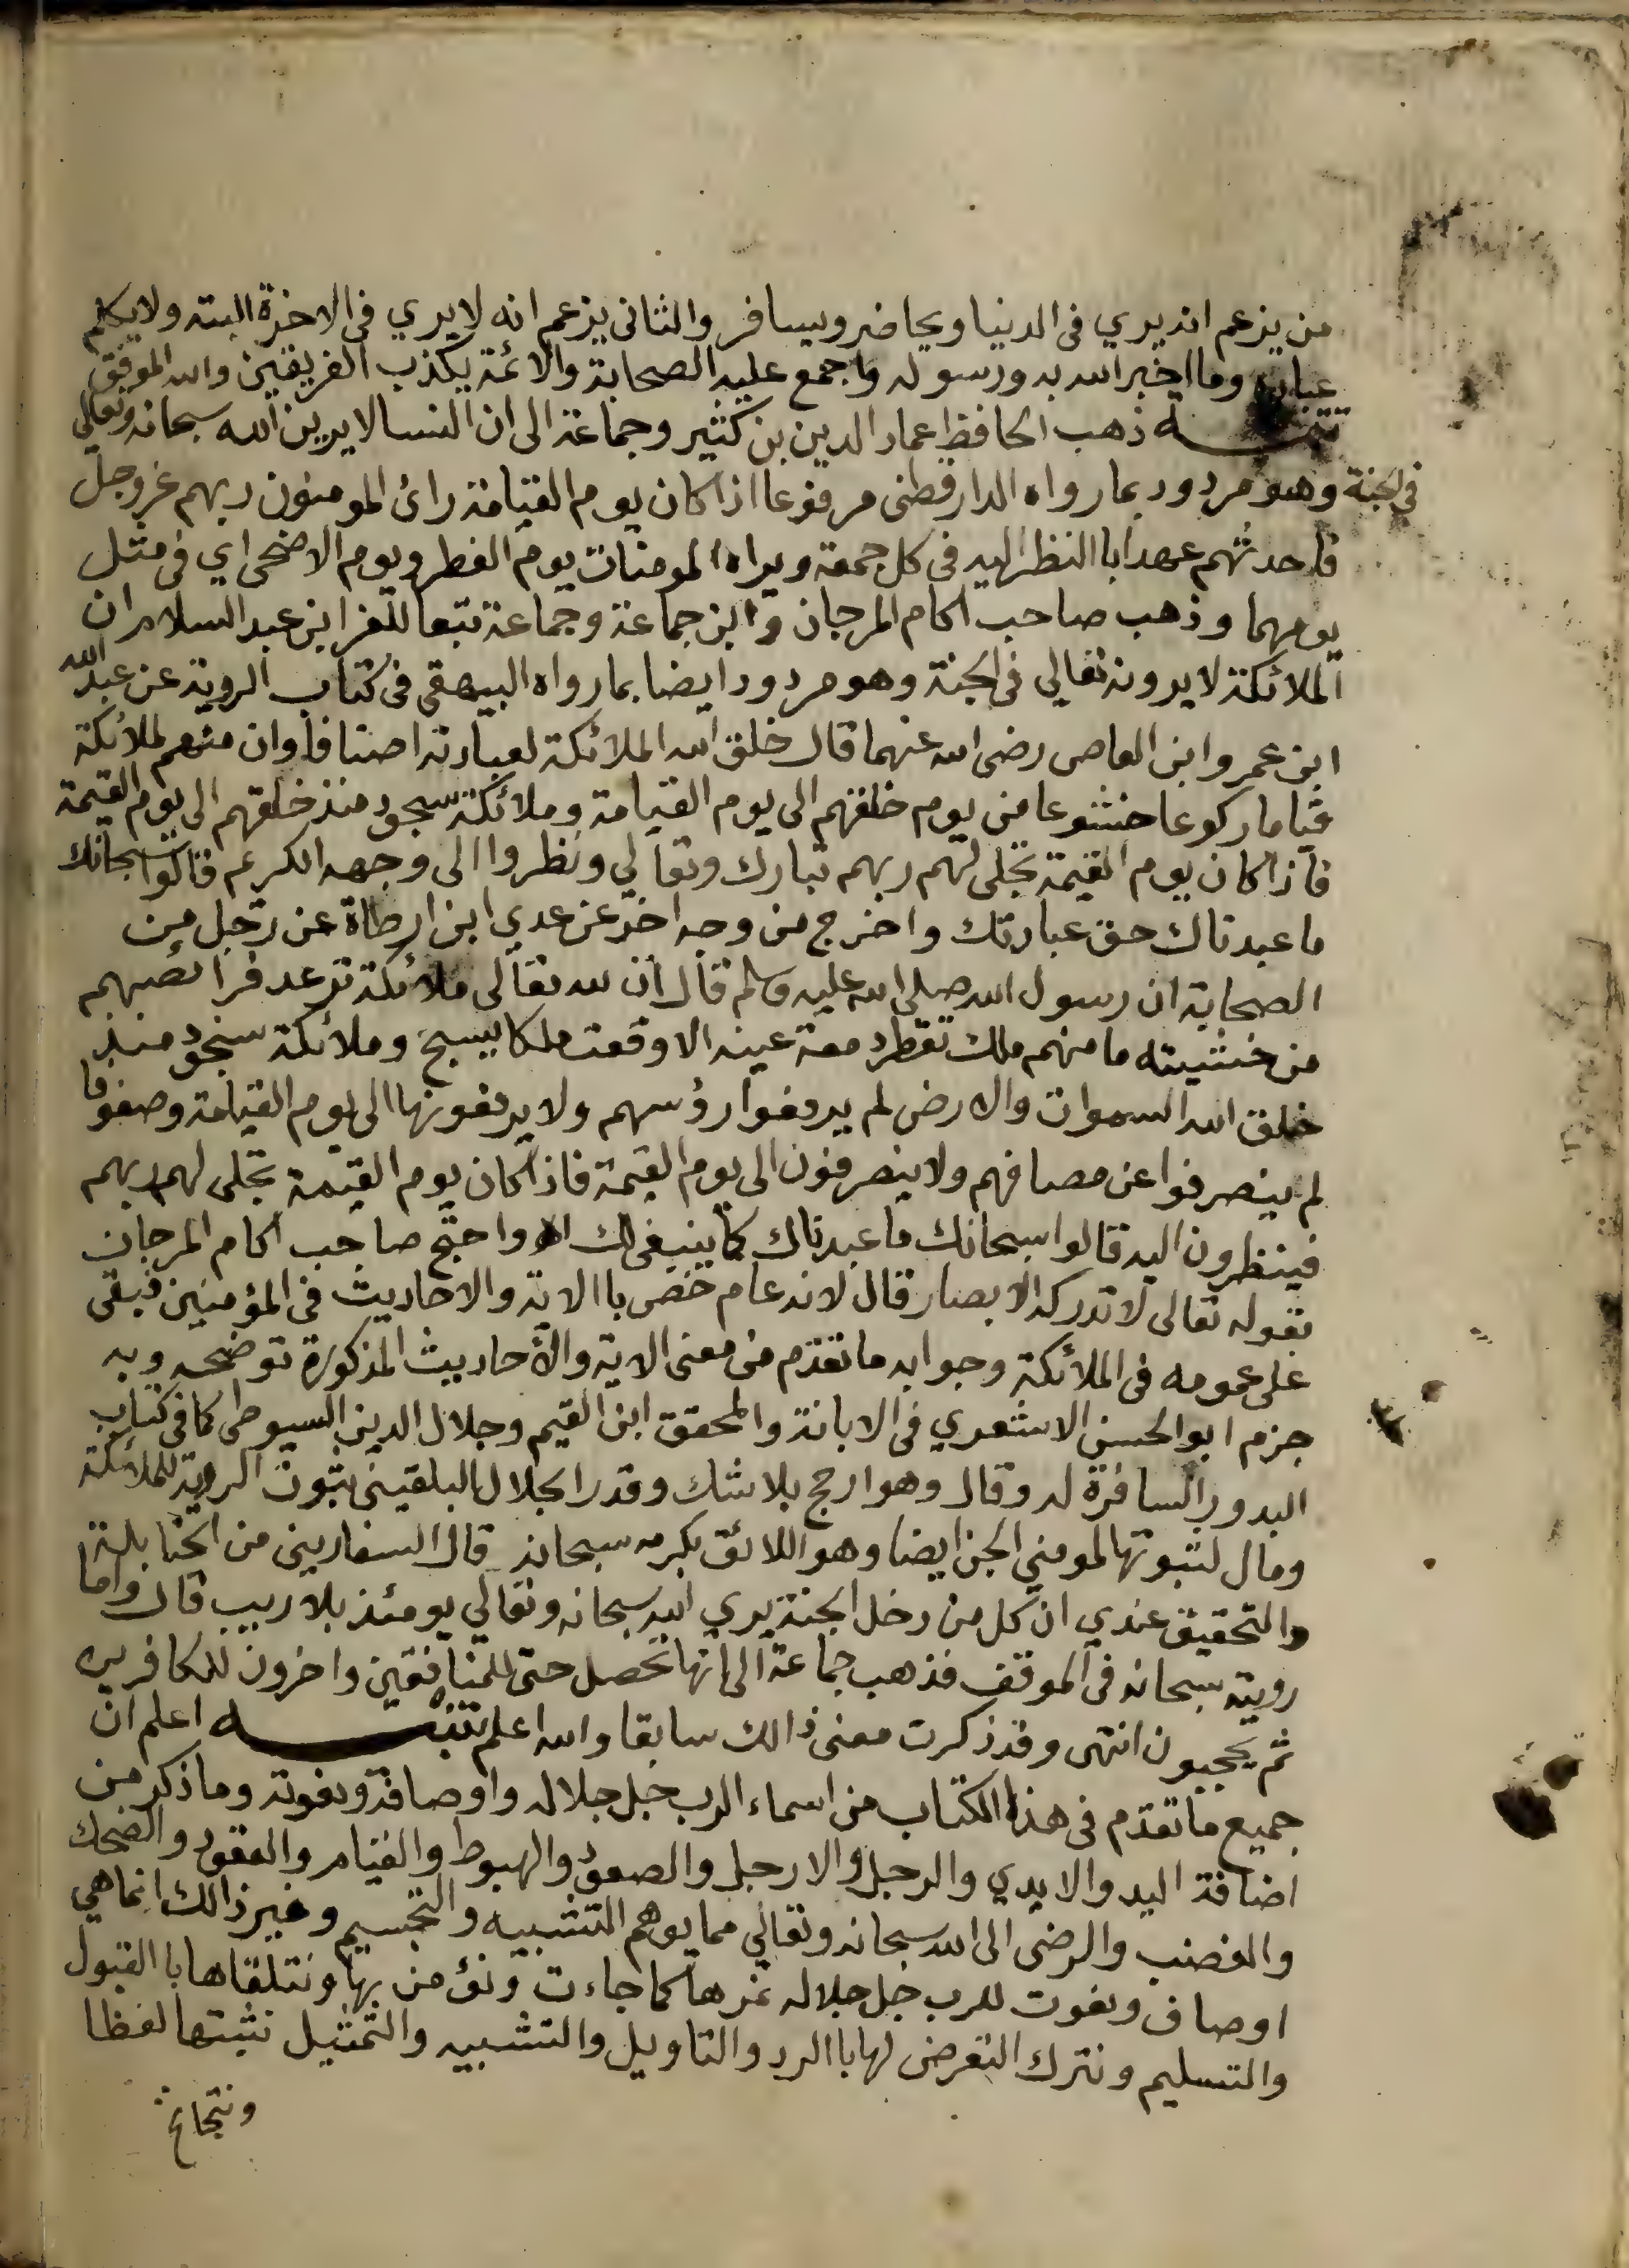 من يزعم انه يري في الدنيا ويحاضر ويسافر والثاني يزعم انه لا يري في الاخرة البته ولا يكلم
عباده وما اخبر الله به ورسوله واجمع عليه الصحابة والائمة يكذب الفريقين والله الموفق
تتمـــه ذهب الحافظ عماد الدين بن كثير وجماعة الى ان النسا لا يرين الله سبحانه وتعالي
في الجنة وهو مردود بما رواه الدارقطني مرفوعا اذا كان يوم القيامة رائ المومنون ربهم عز وجل
فاحدثهم عهدا باالنظر اليه في كل جمعة ويراه المومنات يوم الفطر ويوم الاضحى اي في مثل
يومهما وذهب صاحب اكام المرجان وابن جماعة وجماعة تبعا للعز ابن عبد السلام ان
الملائكة لا يرونه تعالي في الجنة وهو مردود ايضا بما رواه البيهقي في كتاب الروية عن عبد الله
ابن عمرو ابن العاصي رضي الله عنهما قال خلق الله الملائكة لعبادته اصنافا وان منهم لملائكة
قياما ركوعا خشوعا من يوم خلقهم الى يوم القيامة وملائكة سجود منذ خلقهم الى يوم القيمة
فاذا كان يوم القيمة تجلى لهم ربهم تبارك وتعالي ونظروا الى وجهه الكريم قالوا سبحانك
ما عبدناك حق عبادتك واخرج من وجه اخر عن عدي ابن ارطاة عن رجل من
الصحابة ان رسول الله صلى الله عليه وسلم قال ان لله تعالى ملائكة ترعد فرائصهم
من خشيته ما منهم ملك تقطر دمعة عينه الا وقعت ملكا يسبح وملائكة سجود منذ
خلق الله السموات والارض لم يرفعوا رؤسهم ولا يرفعونها الى يوم القيامة وصفوفا
لم ينصرفوا عن مصافهم ولا ينصرفون الى يوم القيمة فاذا كان يوم القيمة تجلى لهم ربهم
فينظرون اليه قالوا سبحانك ما عبدناك كما ينبغي لك اه واحتج صاحب اكام المرجان
بقوله تعالى لا تدركه الابصار قال لانه عام خص باالاية والاحاديث في المؤمنين فبقى
على عمومه في الملائكة وجوابه ما تقدم من معنى الاية والأحاديث المذكورة توضحه وبه
جزم ابو الحسن الاشعري في الابانة والمحقق ابن القيم وجلال الدين السيوطي كما في كتاب
البدور السافرة له وقال وهو ارجح بلا شك وقد الجلال البلقيني بثبوت الروية للملائكة
ومال لثبوتها لمومني الجن ايضا وهو اللائق بكرمه سبحانه قال السفاريني من الحنابلة
والتحقيق عندي ان كل من دخل الجنة يري الله سبحانه وتعالي يومئذ بلا ريب قال واما
رويته سبحانه في الموقف فذهب جماعة الى انها تحصل حتى للمنافقين واخرون للكافرين
ثم يحجبون انتهى وقد ذكرت معنى ذالك سابقا والله اعلم تنبيـــه اعلم ان
جميع ما تقدم في هذا الكتاب من اسماء الرب جل جلاله واوصافه ونعوته وما ذكر من
اضافة اليد والايدي والرجل والارجل والصعود والهبوط والقيام والقعود والضحك
والغضب والرضى الى الله سبحانه وتعالي مما يوهم التشبيه والتجسيم وغير ذالك انما هي
اوصاف ونعوت للرب جل جلاله نمرها كما جاءت ونؤمن بها ونتلقاها باالقبول
والتسليم ونترك التعرض لها باالرد والتاويل والتشبيه والتمثيل نثبتها لفظا